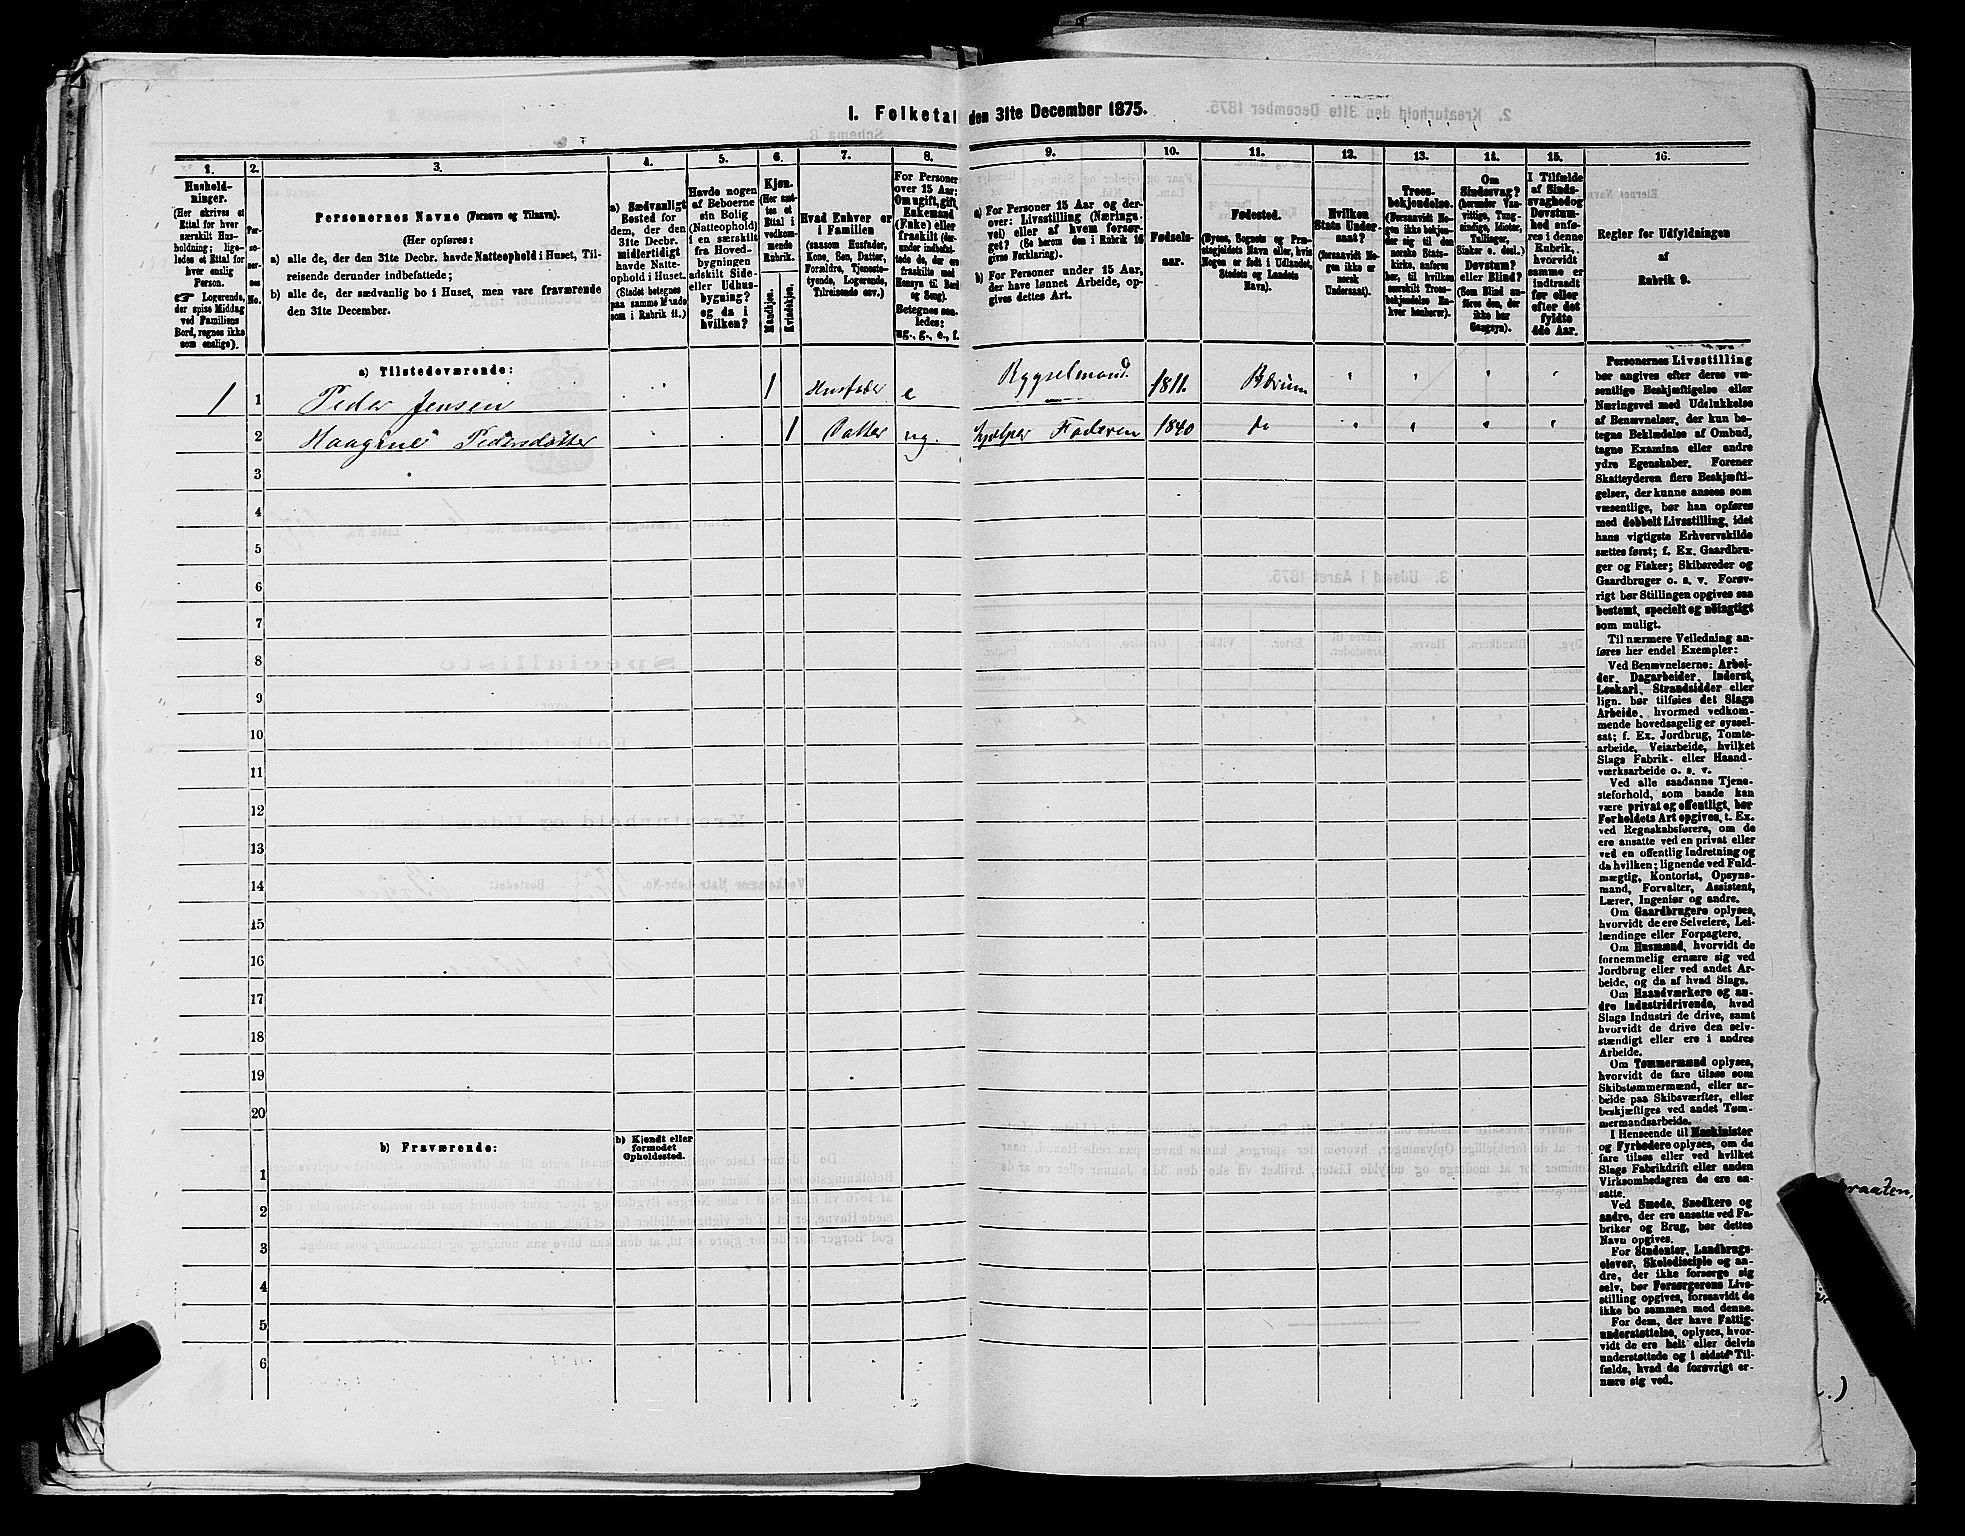 1. Folketal den 31te December 1875.
1.
2.
3.
4.
5.
6.
7.
8.
9.
10.
11.
12.
13.
14.
15.
16.
Husholdninger.
(Her skrives et Ettal for hver særskilt Husholdning; ligeledes et Ettal for hver enslig Person.
☞ Logerende, der spise Middag ved Familiens Bord, regnes ikke som enslige).
Personernes No.
Personernes Navne (Fornavn og Tilnavn).
(Her opføres:
a) alle de, der den 31te Decbr. havde Natteophold i Huset, Tilreisende derunder indbefattede;
b) alle de, der sædvanlig bo i Huset, men vare fraværende den 31te December.
a) Sædvanligt Bosted for dem, der den 31te Decbr. midlertidigt havde Natteophold i Huset.
(Stedet betegnes paa samme Maade som i Rubrik 11.)
Havde nogen af Beboerne sin Bolig (Natteophold) i en særskilt fra Hovedbygningen adskilt Side- eller Udhusbygning? og da i hvilken?
Kjøn.
(Her sættes et Ettal i vedkommende Rubrik.
Mandkjøn.
Kvindekjøn.
Hvad Enhver er i Familien
(saasom Husfader, Kone, Søn, Datter, Forældre, Tjenestetyende, Logerende, Tilreisende osv.)
For Personer over 15 Aar: Om ugift, gift, Enkemand (Enke) eller fraskilt (derunder indbefattede de, der ere fraskilte med Hensyn til Bord og Seng).
Betegnes saaledes:
ug., g., e., f.
a) For Personer 15 Aar og derover: Livsstilling (Næringsvei) eller af hvem forsørget? (Se herom den i Rubrik 16 givne Forklaring).
b) For Personer under 15 Aar, der have lønnet Arbeide, opgives dettes Art.
Fødselsaar.
Fødested.
(Byens, Sognets og Præstegjeldets Navn eller, hvis Nogen er født i Udlandet, Stedets og Landets Navn).
Hvilken Stats Undersaat?
(forsaavidt Nogen ikke er norsk Undersaat).
Troesbekjendelse.
(Forsaavidt Nogen ikke bekjender sig til den norske Statskirke, anføres her, til hvilken særskilt Troesbekjendelse Enhver henhører).
Om Sindssvag?
(herunder Vanvittige, Tungsindige, Idioter, Tullinger, Sinker o. desl.)
Døvstum? eller Blind?
(Som Blind anføres den, der ikke har Gangsyn).
I Tilfælde af Sindssvaghed og Døvstumhed anføres i denne Rubrik, hvorvidt samme er indtraadt før eller efter det fyldte 4de Aar.
Regler for Udfyldningen
af
Rubrik 9.
a) Tilstedeværende:
1 1 Peder Jensen 1 Husfader e Bygselmand 1811 Bærum
2 Haagine Pedersdatter 1 Datter ug. hjælper Faderen 1840 do
3
4
5
6
7
8
9
10
11
12
13
14
15
16
17
18
19
20
b) Fraværende:
b) Kjendt eller formodet Opholdssted.
1
2
3
4
5
6
Personernes Livsstilling
bør angives efter deres væ-
sentlige Beskjæftigelse eller
Næringsvei med Udelukkelse
af Benævnelser, der kun be-
tegne Beklædelse af Ombud,
tagne Examina eller andre
ydre Egenskaber. Forener
Skatteyderen flere Beskjæfti-
gelser, der kunne ansees som
væsentlige, bør han opføres
med dobbelt Livsstilling, idet
hans vigtigste Erhvervskilde
sættes først; f. Ex. Gaardbru-
ger og Fisker; Skibsreder og
Gaardbruger o. s. v. Forøv-
rigt bør Stillingen opgives saa
bestemt, specielt og nøiagtigt
som muligt.
Til nærmere Veiledning an-
føres her endel Exempler:
Ved Benævnelserne: Arbei-
der, Dagarbeider, Inderst,
Løskarl, Strandsidder eller
lign. bør tilføies det Slags
Arbeide, hvormed vedkom-
mende hovedsagelig er syssel-
sat; f. Ex. Jordbrug, Tomte-
arbeide, Veiarbeide, hvilket
Slags Fabrik- eller Haand-
værksarbeide o. s. v.
Ved alle saadanne Tjene-
steforhold, som baade kan
være privat og offentligt, bør
Forholdets Art opgives, t. Ex.
ved Regnskabsførere, om de
ere ansatte ved en privat eller
ved en offentlig Indretning og
da hvilken; lignende ved Fuld-
mægtig, Kontorist, Opsyns-
mand, Forvalter, Assistent,
Lærer, Ingeniør og andre.
Om Gaardbrugere oplyses,
hvorvidt de ere Selveiere, Lei-
lændinge eller Forpagtere.
Om Husmænd, hvorvidt de
fornemmelig ernære sig ved
Jordbrug eller ved andet Ar-
beide, og da af hvad Slags.
Om Haandværkere og an-
dre Industridrivende, hvad
Slags Industri de drive, samt
hvorvidt de drive den selv-
stændigt eller ere i andres
Arbeide.
Om Tømmermænd oplyses,
hvorvidt de fare tilsøs som
Skibstømmermænd, eller ar-
beide paa Skibsværfter, eller
beskjæftiges ved andet Tøm-
mermandsarbeide.
I Henseende til Maskinister
og Fyrbødere oplyses, om de
fare tilsøs eller ved hvilket
Slags Fabrikdrift eller anden
Virksomhedsgren de ere an-
satte.
Ved Smede, Snedkere og
andre, der ere ansatte ved Fa-
briker og Brug, bør dettes
Navn opgives.
For Studenter, Landbrugs-
elever, Skoledisciple og an-
dre, der ikke forsørge sig
selv, bør Forsørgerens Liv-
stilling opgives, forsaavidt de
ikke bo sammen med denne.
For dem, der have Fattig-
understøttelse, oplyses, hvor-
vidt de ere helt eller delvis
understøttede og i sidste Til-
fælde, hvad de forøvrigt er-
nære sig ved.